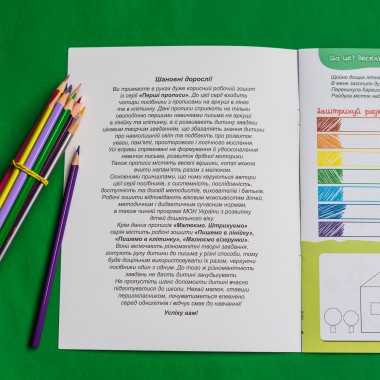 Шановні дорослі!
Ви тримаєте в руках дуже корисний робочий зошит
із серії «Перші прописи». До цієї серії входить
чотири посібники з прописами на аркуші в лінію
та в клітинку. Дані прописи сприяють не тільки
оволодінню першими навичками письма на аркуші
в лінійку та клітинку, а й розвивають дитину завдяки
цікавим творчим завданням, що збагатять знання дитини
про навколишній світ, потурбуються про розвиток
уваги, пам'яті, просторового і логічного мислення.
Усі вправи спрямовані на формування й удосконалення
навичок письма, розвиток дрібної моторики.
Також прописи містять веселі віршики, котрі можна
вчити напам'ять разом з малюком.
Основними принципами, що ними керується автори
цієї серії посібників, є системність, послідовність,
доступність та досвід методистів, вихователів і батьків.
Робочі зошити відповідають віковим можливостям дітей,
методичним і дидактичним сучасним нормам,
а також чинній програмі МОН України з розвитку
дітей дошкільного віку.
Крім даних прописів «Малюємо. Штрихуємо»
серія містить робочі зошити «Пишемо в лінійку»,
«Пишемо в клітинку», «Малюємо візерунки».
Вони включають різноманітні творчі завдання,
готують руку дитини до письма у різні способи, тому
буде доцільним використовувати їх разом, чергуючи
посібники один з одним. До того ж різноманітність
завдань не дасть дитині занудьгувати.
Не пропустіть шанс допомогти дитині вчасно
підготуватися до школи. Нехай малюк, ставши
першокласником, почуватиметься впевнено
серед однолітків і відчує смак до навчання!
Успіху вам!
Що це? Весел
Щойно дощик літній
В небі захопило д
Перекинула барвис
Райдуга місток на
Заштрихуй рядк